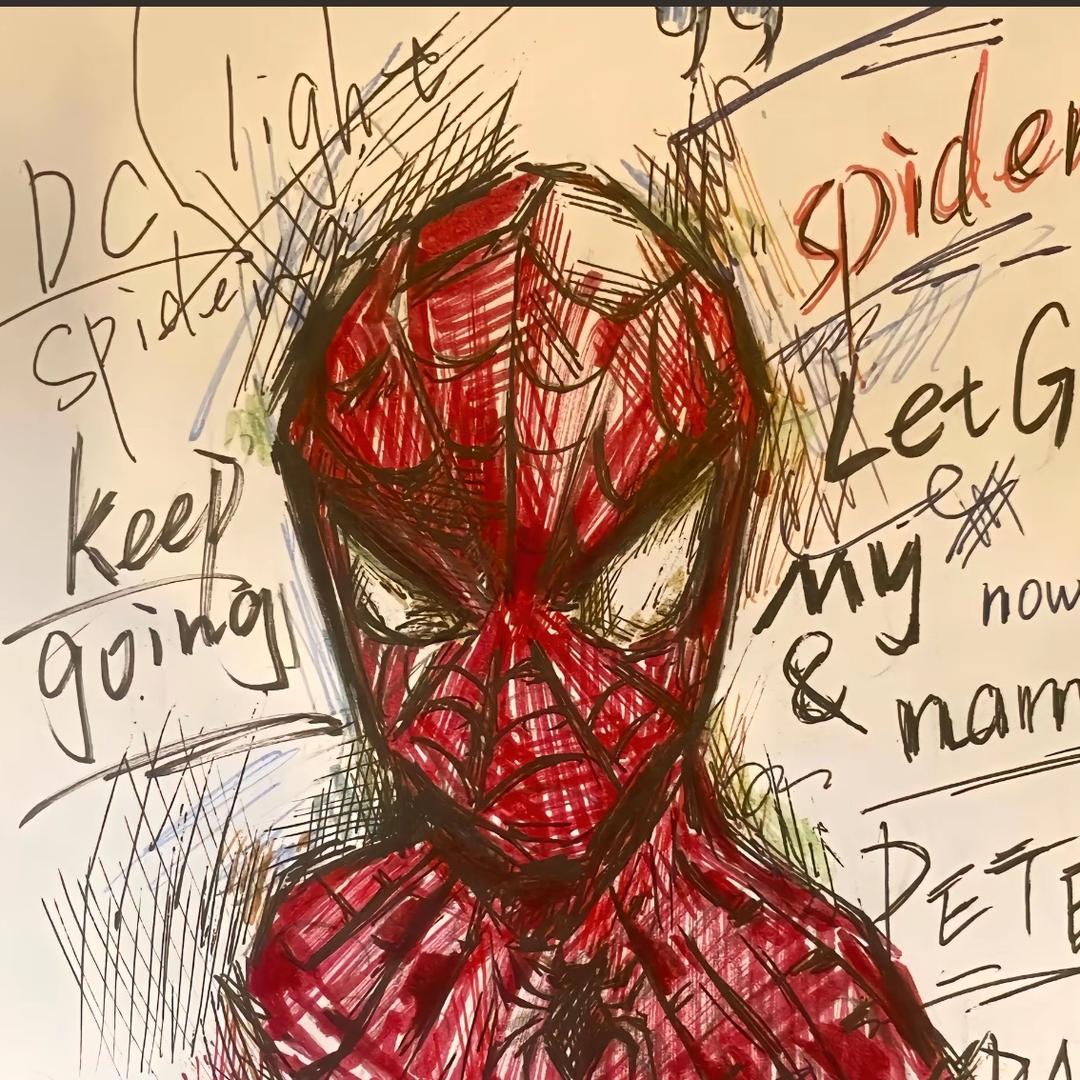 light
DC
Spider
Keep
going
"
Spider
Let G
My
now
&
nam
PETE